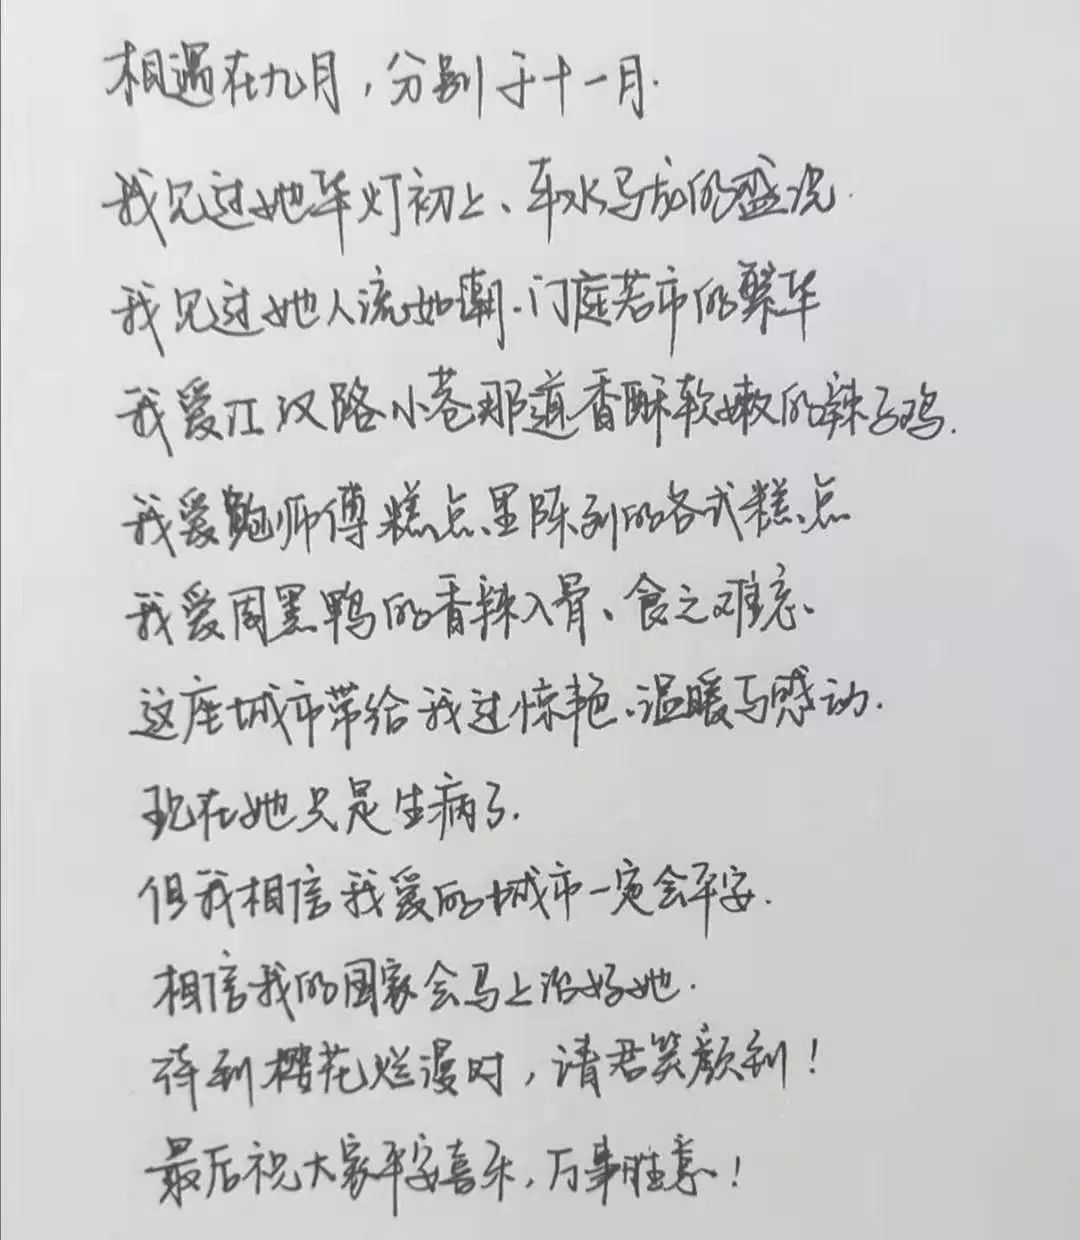 相遇在九月，分别于十一月.
我见过她华灯初上、车水马龙的盛况.
我见过她人流如潮.门庭若市的繁华
我爱江汉路小巷那道香酥软嫩的辣子鸡.
我爱鲍师傅糕点里陈列的各式糕点
我爱周黑鸭的香辣入骨、食之难忘、
这座城市带给我过惊艳、温暖与感动.
现在她只是生病了.
但我相信我爱的城市一定会平安.
相信我的国家会马上治好她.
待到樱花烂漫时，请君笑颜到！
最后祝大家平安喜乐，万事胜意！